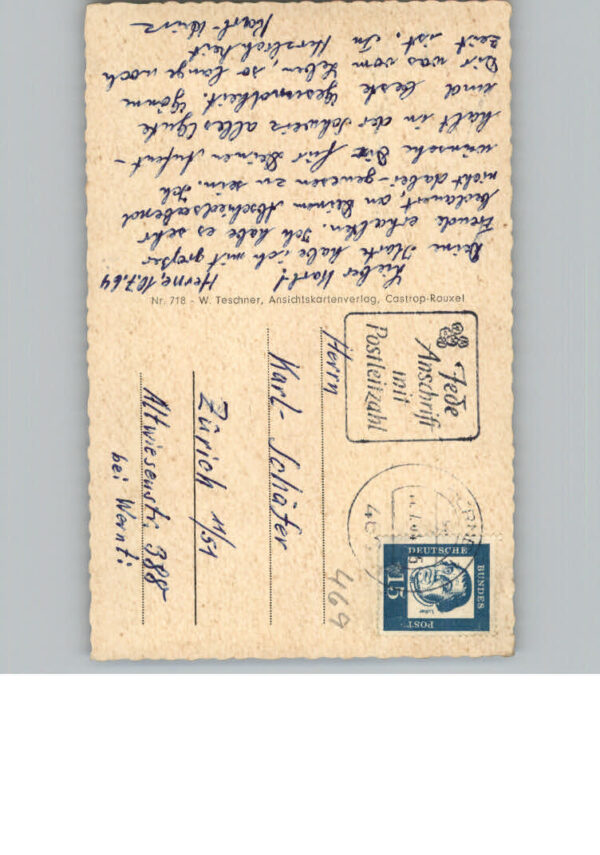 Herne, 10.7.64
Lieber Karl!
Deine Karte habe ich mit großer
Freude erhalten. Ich habe es sehr
bedauert, an Deinem Abschiedsabend
nicht dabei-gewesen zu sein. Ich
wünsche Dir für Deinen Aufent-
halt in der Schweiz alles Gute
und beste Gesundheit. Gönn
Dir was vom Leben, so lange noch
Zeit ist. In Herzlichkeit
Karl-Heinz
Nr. 718 - W. Teschner, Ansichtskartenverlag, Castrop-Rauxel
Jede
Anschrift
mit
Postleitzahl
DEUTSCHE
BUNDES
POST
15
Luther
469
Herrn
Karl-Schäfer
Zürich 11/51
Altwiesenstr. 388
bei Wernti